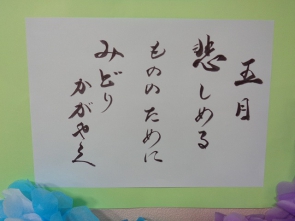 五月
悲しめる
もののために
みどり
かがやく